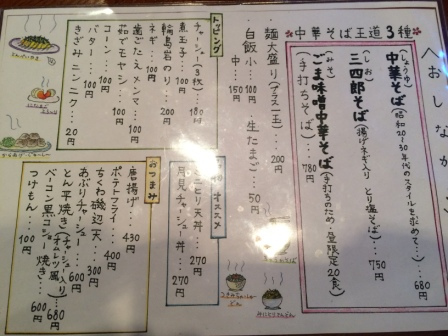 おしながき
中華そば王道3種
(しょうゆ)
中華そば(昭和20〜30年代のスタイルを求めて…)…680円
(しお)
三四郎そば(揚げネギ入り とり塩そば)…750円
(みそ)
ごま味噌中華そば(手打ちのため・昼限定20食)
(手打ちそば)…780円
麺大盛り(プラス一玉)…200円
白飯 小…100円 生たまご…50円
中…150円
トッピング
チャーシュー(3枚)…180円
煮玉子…100円
輪島岩のり…200円
ネギ…100円
歯ごたえメンマ…100円
茹でモヤシ…100円
コーン…100円
バター…100円
きざみニンニク…20円
オススメ
とり天丼…270円
月見チャーシュー丼…270円
おつまみ
唐揚げ…430円
ポテトフライ…400円
ちくわ磯辺天…300円
あぶりチャーシュー…600円
とん平焼き(チャーシュー入りオムレツ風)…680円
ベーコン黒コショー焼き…600円
つけもん…100円